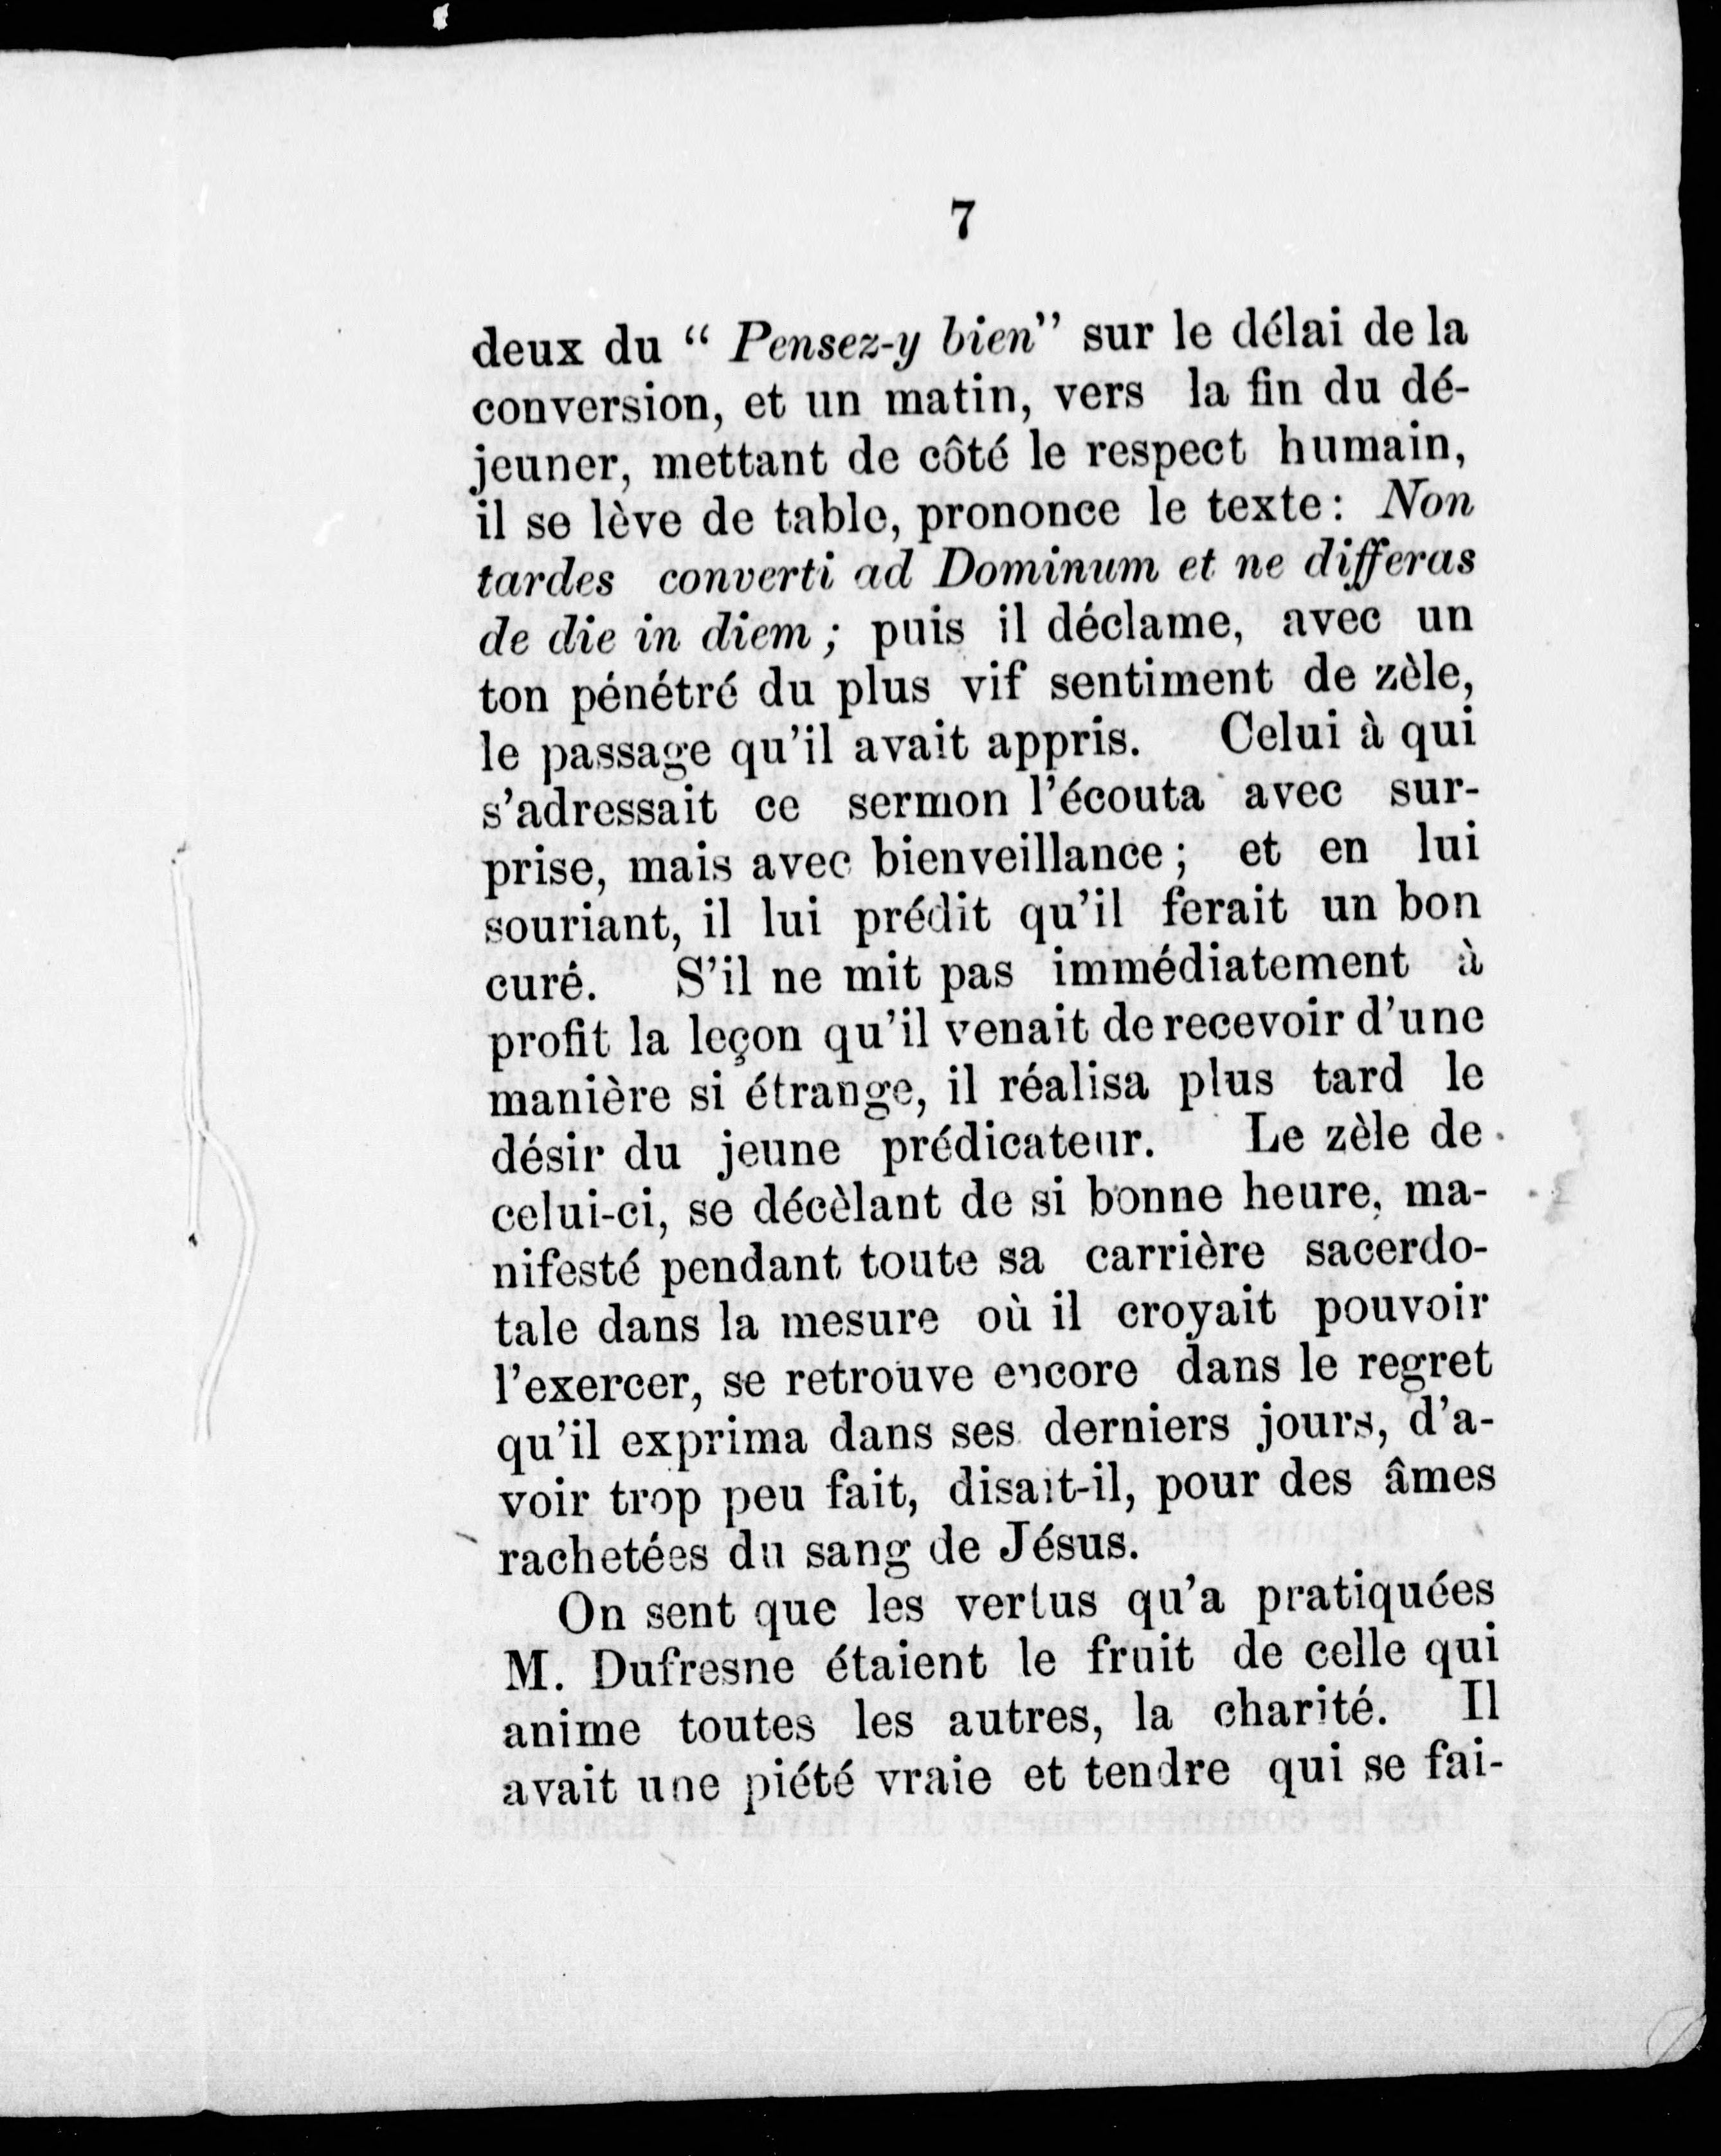 7
deux du “ Pensez-y bien” sur le délai de la
conversion, et un matin, vers la fin du dé-
jeuner, mettant de côté le respect humain,
il se lève de table, prononce le texte: Non
tardes converti ad Dominum et ne differas
de die in diem ; puis il déclame, avec un
ton pénétré du plus vif sentiment de zèle,
le passage qu’il avait appris. Celui à qui
s’adressait ce sermon l’écouta avec sur-
prise, mais avec bienveillance; et en lui
souriant, il lui prédit qu’il ferait un bon
curé. S’il ne mit pas immédiatement à
profit la leçon qu’il venait de recevoir d’une
manière si étrange, il réalisa plus tard le
désir du jeune prédicateur. Le zèle de
celui-ci, se décèlant de si bonne heure, ma-
nifesté pendant toute sa carrière sacerdo-
tale dans la mesure où il croyait pouvoir
l’exercer, se retrouve encore dans le regret
qu’il exprima dans ses derniers jours, d’a-
voir trop peu fait, disait-il, pour des âmes
rachetées du sang de Jésus.
On sent que les vertus qu’a pratiquées
M. Dufresne étaient le fruit de celle qui
anime toutes les autres, la charité. Il
avait une piété vraie et tendre qui se fai-